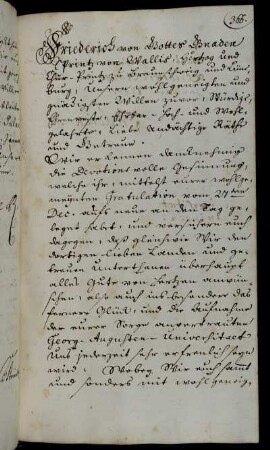 366.
Friederich von Gottes Gnaden
Printz von Wallis, Hertzog und
Chur-Printz zu Braunschweig und Lüne-
burg, Unsern wohlgeneigten und
gnädigsten Willen zuvor, Würdige,
Ehrenveste, Hoch- und Wohl-
gelahrte, Liebe Andächtige Räthe
und Getreue.
Wir erkennen dancknehmig
die Devotions volle Gesinnung,
welche ihr, mittelst eurer wohlge-
meynten Gratulation vom 27ten
Dec. aufs neue an den Tag ge-
leget habt, und versichern euch
dagegen, daß gleichwie Wir den
dortigen lieben Landen und ge-
treuen Unterthanen überhaupt
alles Gute von Hertzen anwün-
schen, also auch ins besondere das
fernere Glück, und die Aufnahme
der eurer Sorge anvertrauten
Georg-Augustus-Universitaet
Uns jederzeit sehr erfreulich seyn
wird. Wobey Wir euch samt
und sonders mit wohlgeneig-